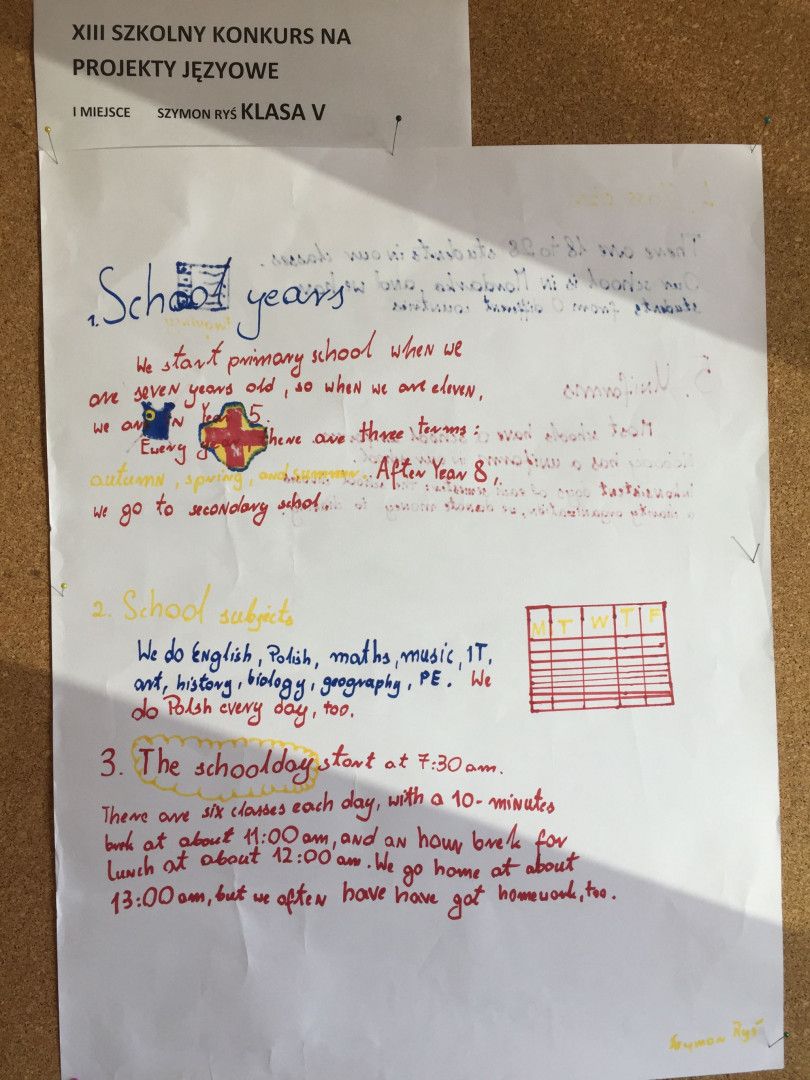 XIII SZKOLNY KONKURS NA
PROJEKTY JĘZYOWE
I MIEJSCE SZYMON RYŚ KLASA V
1. School years
We start primary school when we
are seven years old, so when we are eleven,
we are in Year 5.
Ewery year there are three terms:
autumn, spring, and summer. After Year 8,
we go to secondary school.
2. School subjects
We do English, Polish, maths, music, IT,
art, history, biology, geography, PE. We
do Polsh every day, too.
M T W T F
3. The schoolday start at 7:30 am.
There are six classes each day, with a 10-minutes
brek at about 11:00 am, and an houy brek for
lunch at about 12:00 am. We go home at about
13:00 am, but we often have have got homework, too.
Szymon Ryś